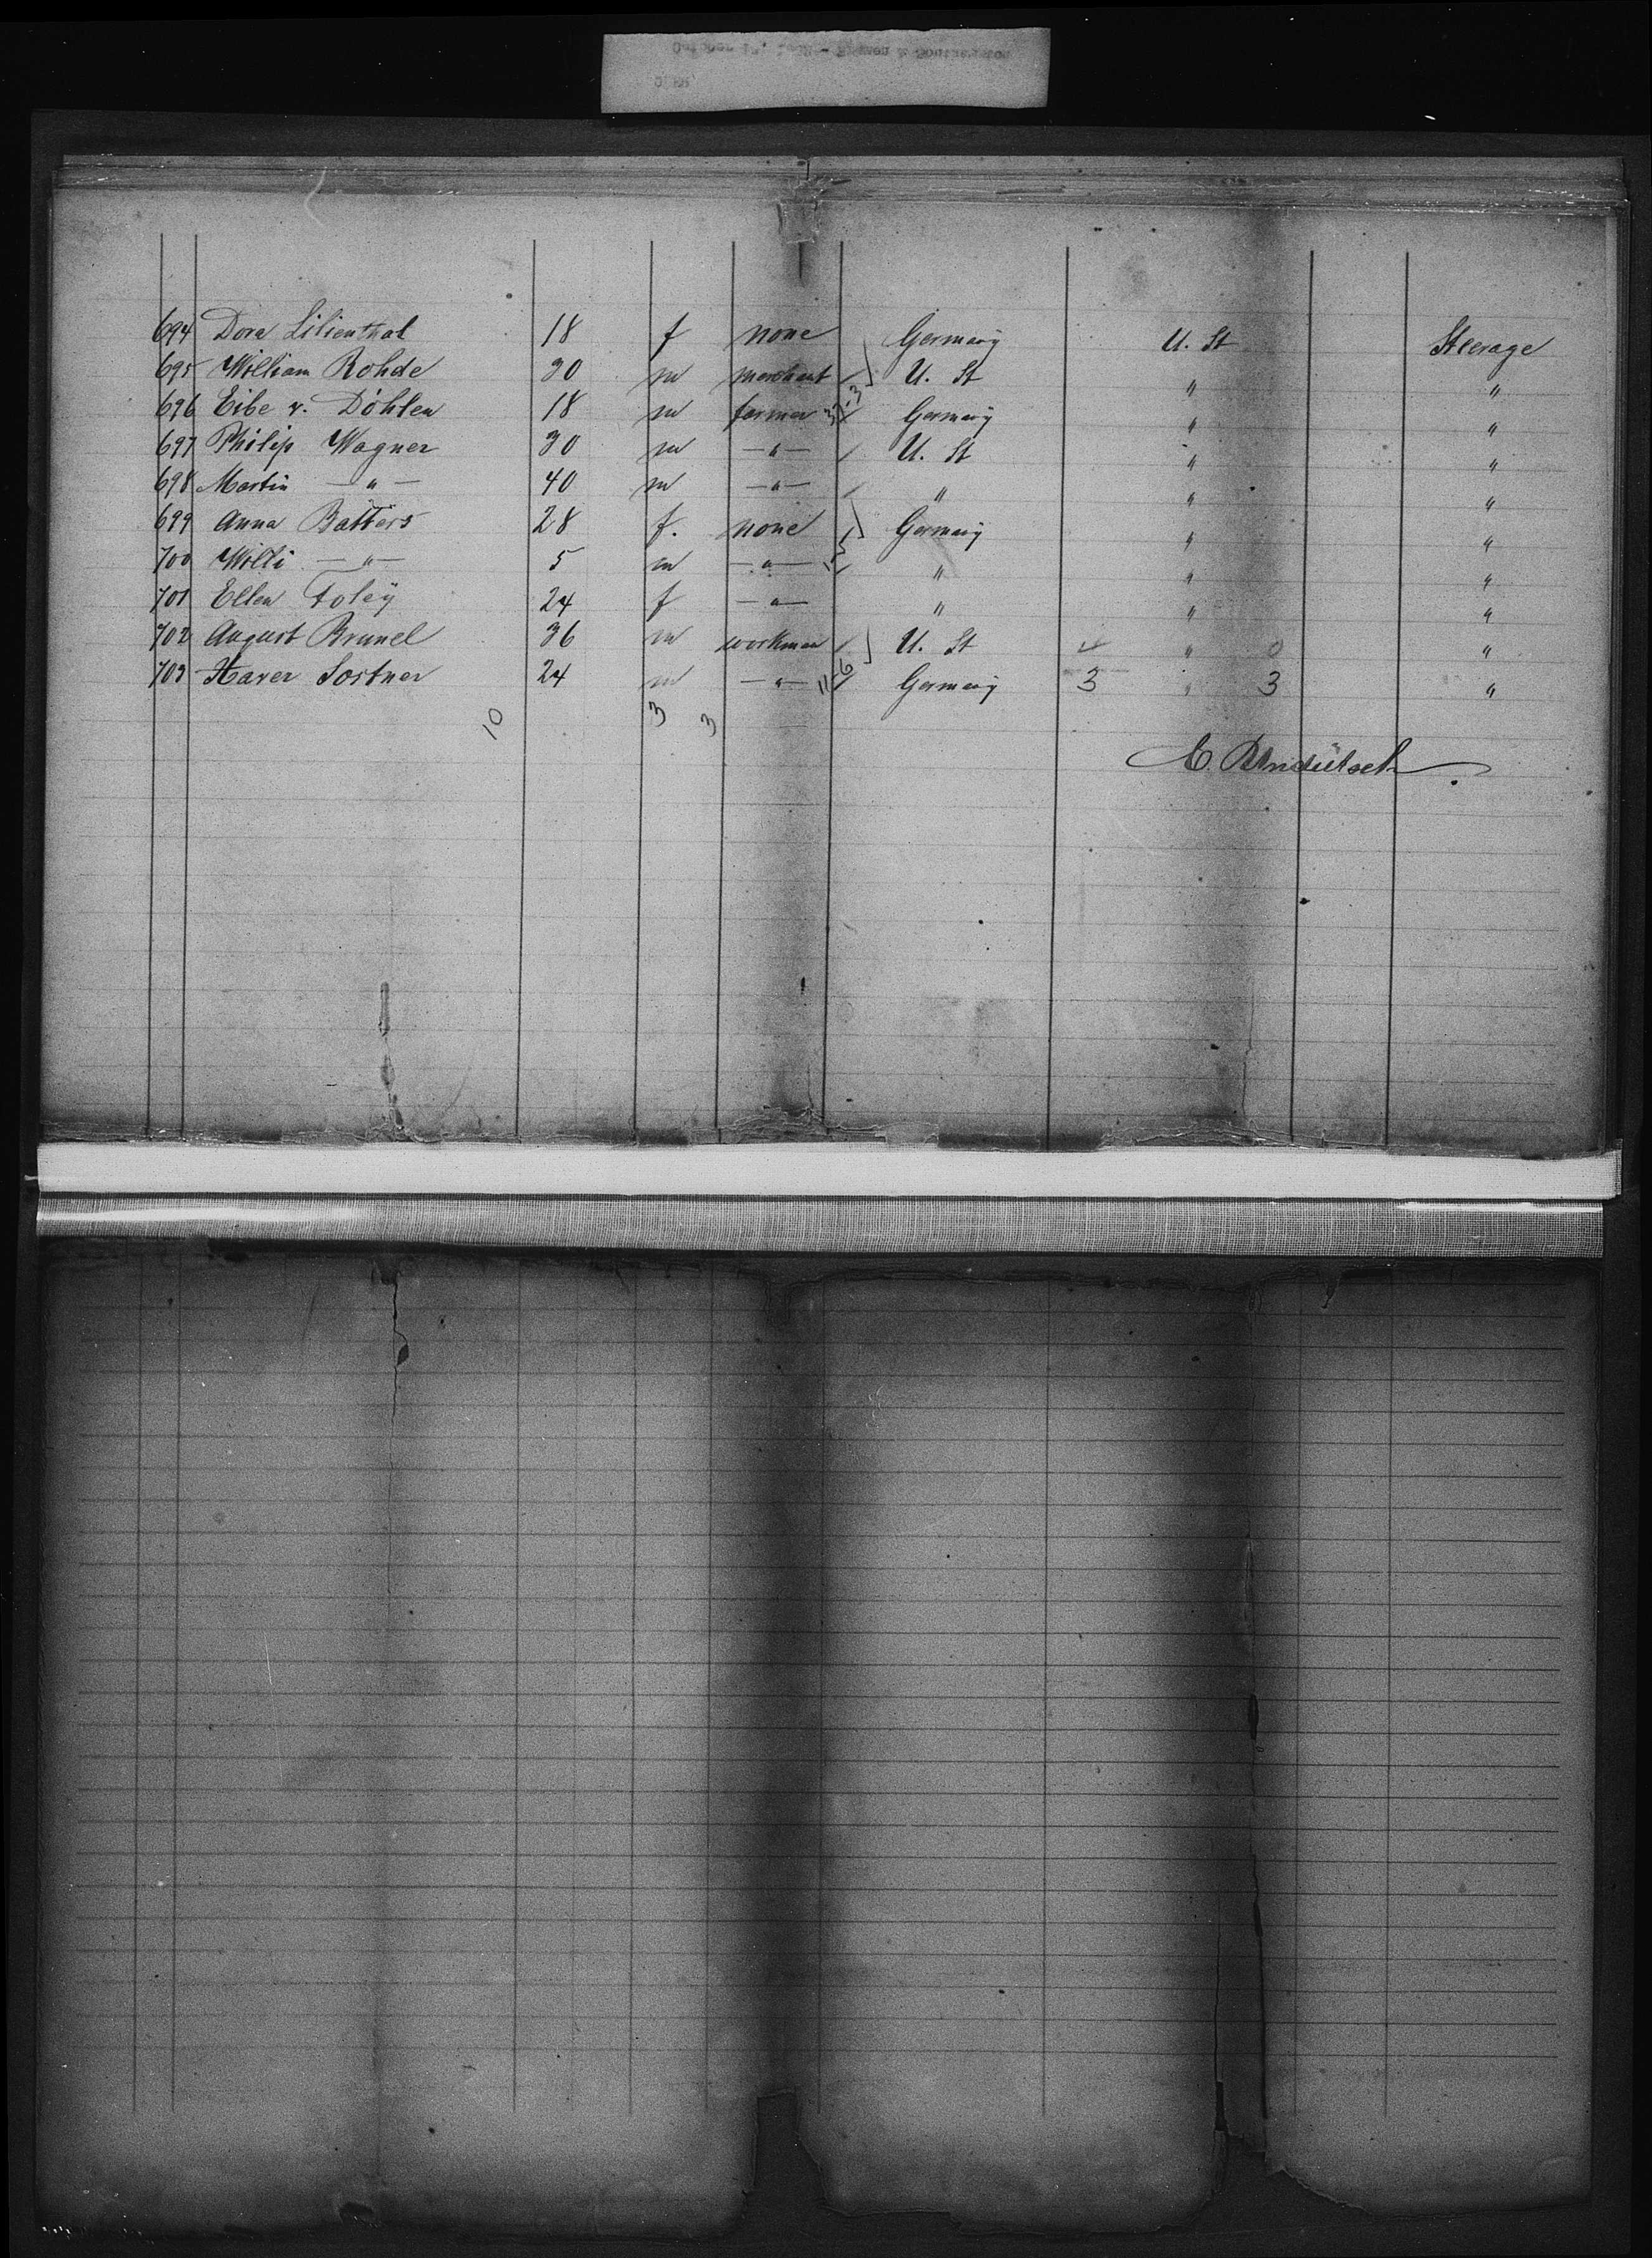 694 Dora Lilienthal 18 f none Germany U. St Steerage
695 William Rohde 30 m merchant U. St " "
696 Eibe v. Döhlen 18 m farmer Germany " "
697 Philip Wagner 30 m —"— U. St " "
698 Martin —"— 40 m —"— " " "
699 Anna Batters 28 f. none Germany " "
700 Willi —"— 5 m —"— " " "
701 Ellen Foley 24 f —"— " " "
702 August Brunel 36 m workman U. St " 0 "
703 Xaver Sostner 24 m —"— Germany 3 " 3 "
10 3 3